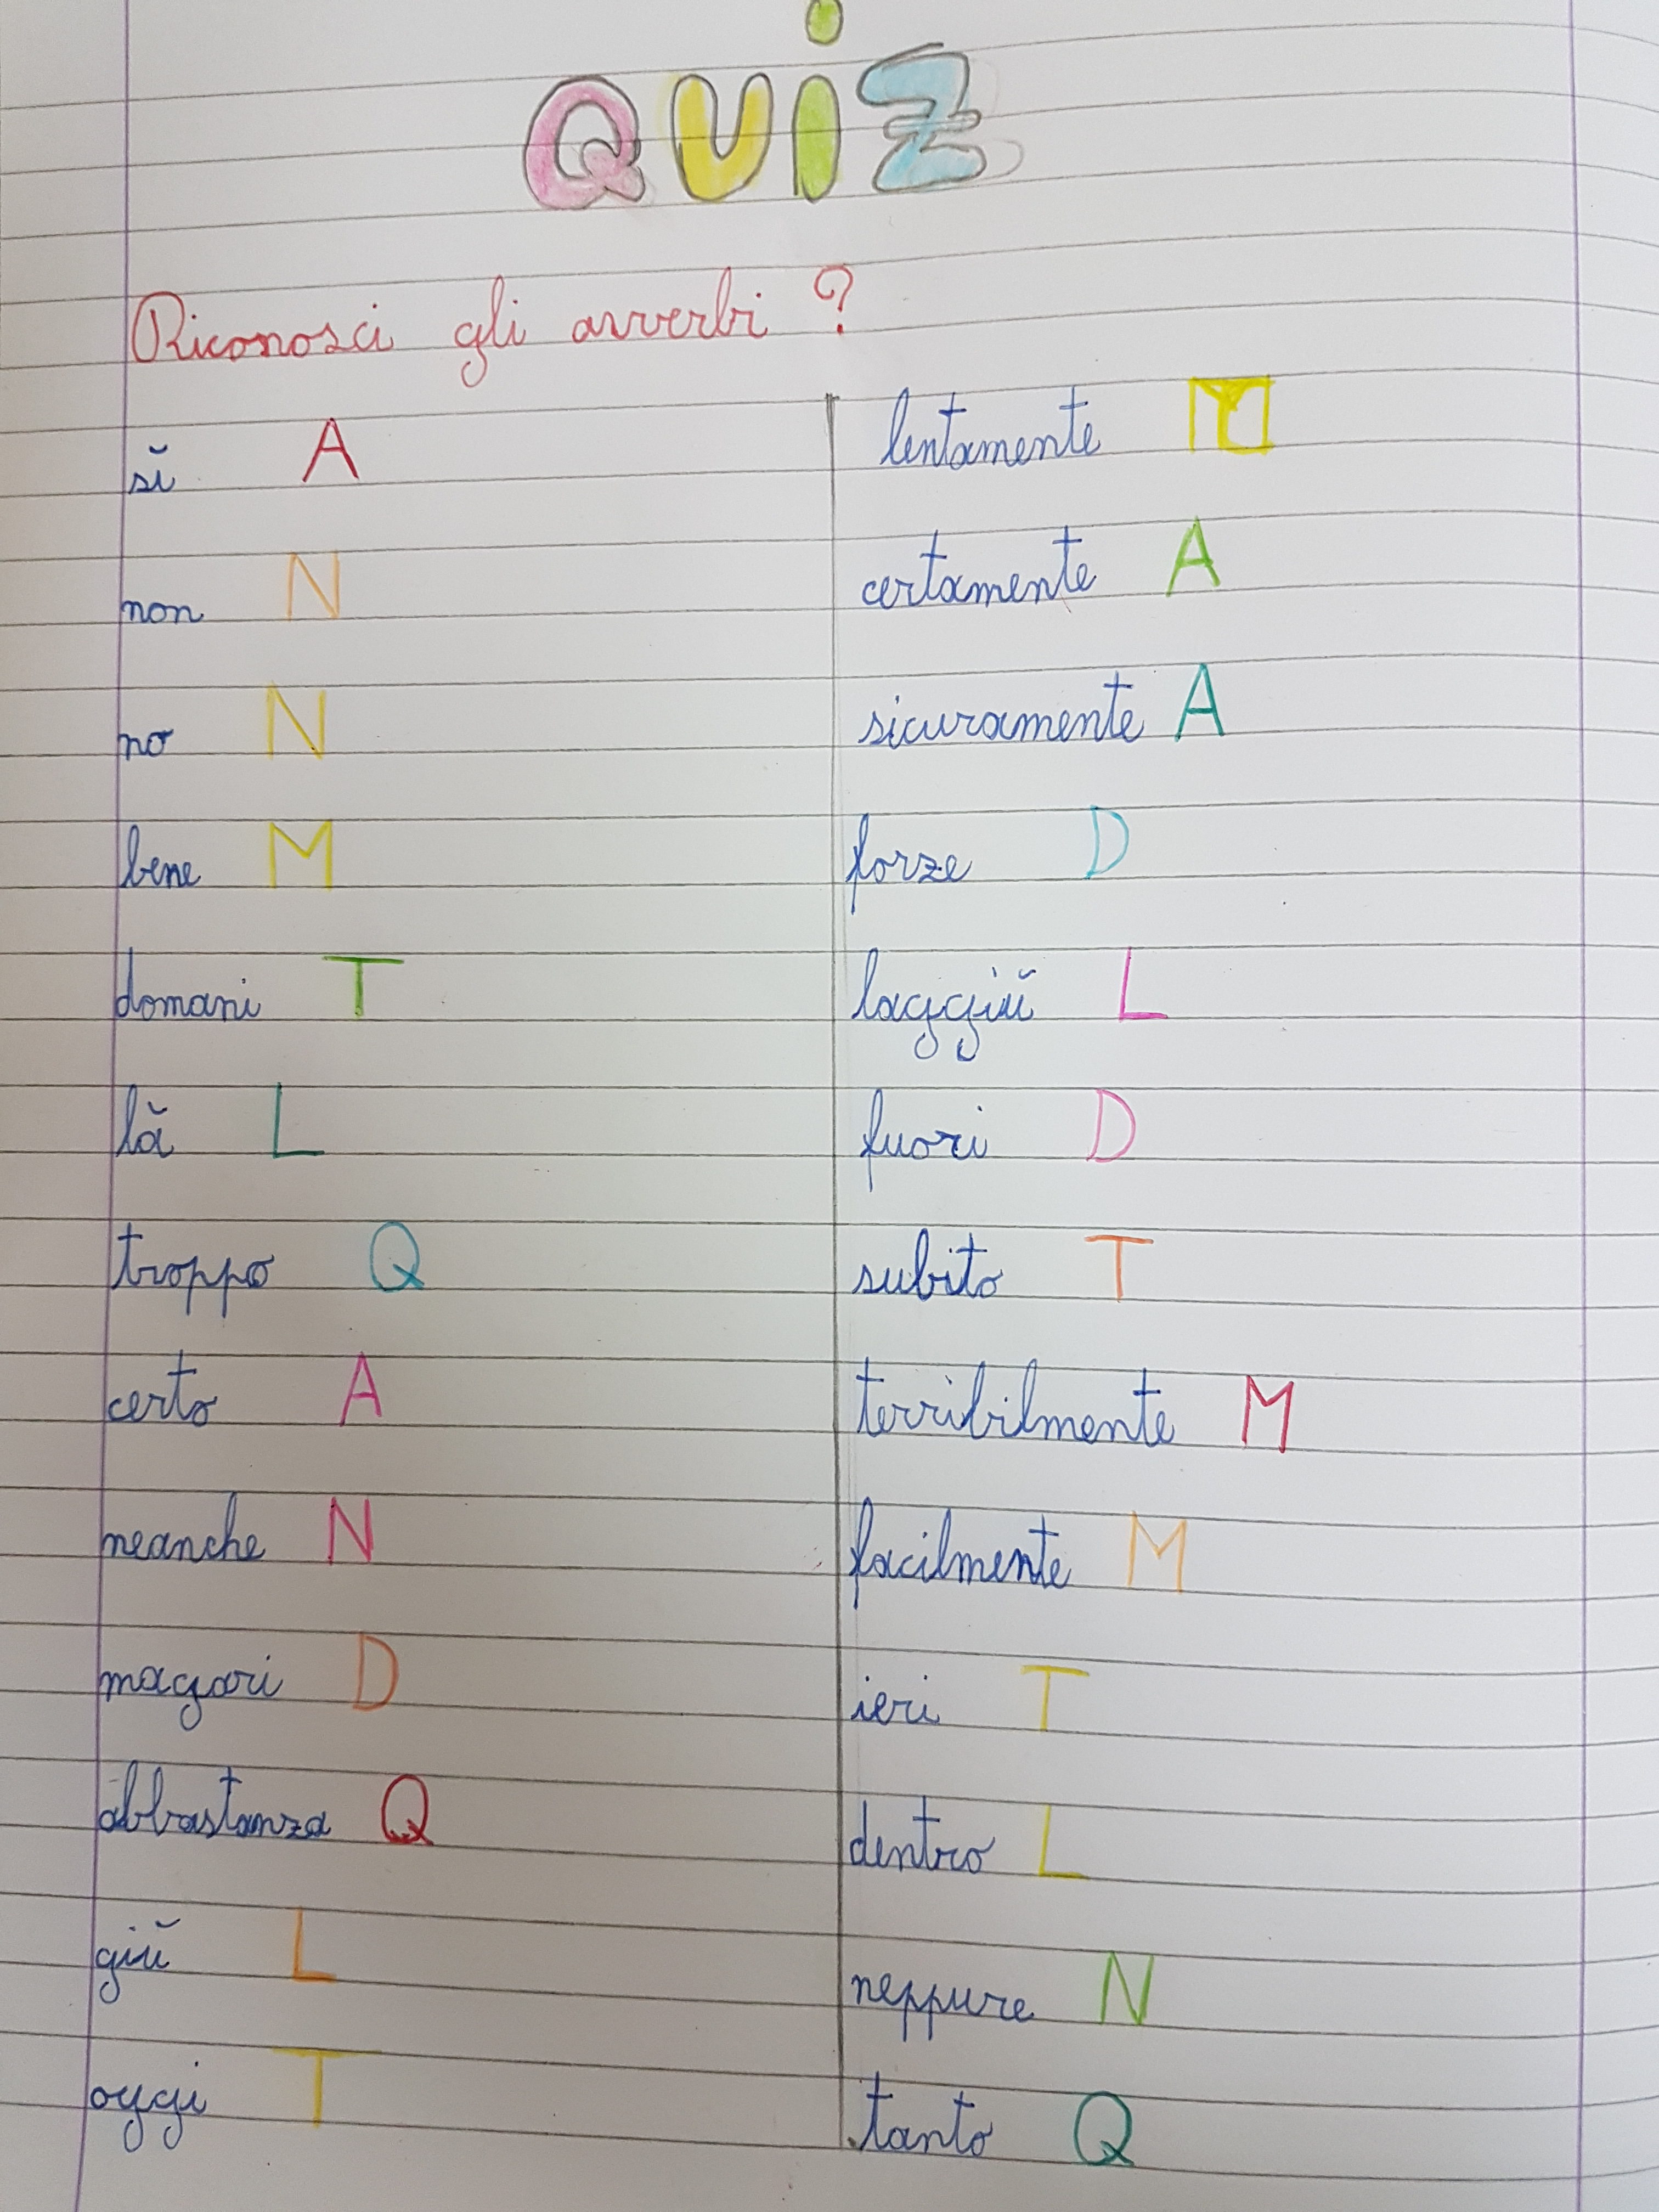 QUiZ
Riconosci gli avverbi ?
sì A
non N
no N
bene M
domani T
là L
troppo Q
certo A
neanche N
magari D
abbastanza Q
giù L
oggi T
lentamente M
certamente A
sicuramente A
forze D
laggiù L
fuori D
subito T
terribilmente M
facilmente M
ieri T
dentro L
neppure N
tanto Q